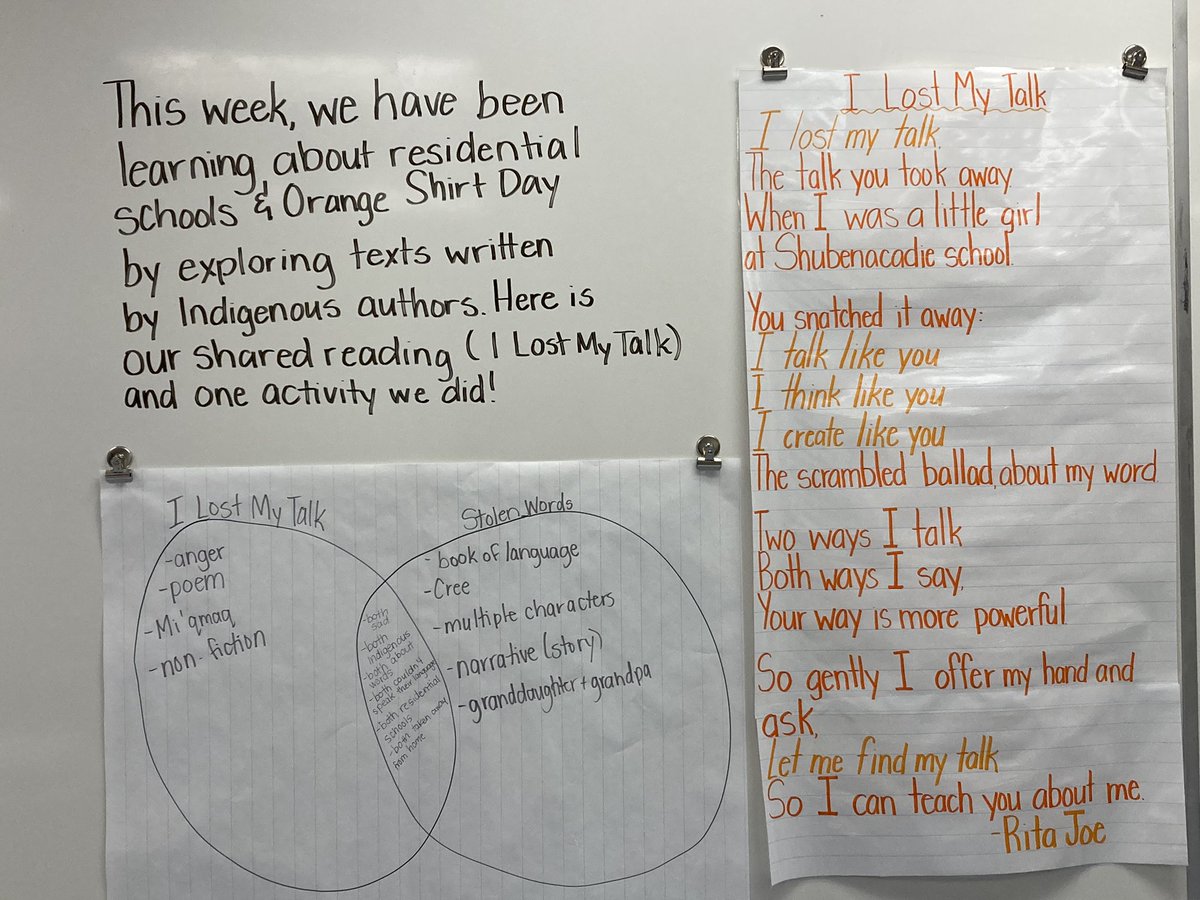 This week, we have been
learning about residential
schools & Orange Shirt Day
by exploring texts written
by Indigenous authors. Here is
our shared reading (I Lost My Talk)
and one activity we did!
I Lost My Talk
-anger
-poem
-Mi'qmaq
-non-fiction
-both
sad
-both
Indigenous
-both
words about
-both couldn't
speak their language
-both residential
schools
-both taken away
from home
Stolen Words
-book of language
-Cree
-multiple characters
-narrative (story)
-granddaughter + grandpa
I Lost My Talk
I lost my talk.
The talk you took away.
When I was a little girl
at Shubenacadie school.
You snatched it away:
I talk like you
I think like you
I create like you
The scrambled ballad, about my word.
Two ways I talk
Both ways I say,
Your way is more powerful.
So gently I offer my hand and
ask,
Let me find my talk
So I can teach you about me.
-Rita Joe